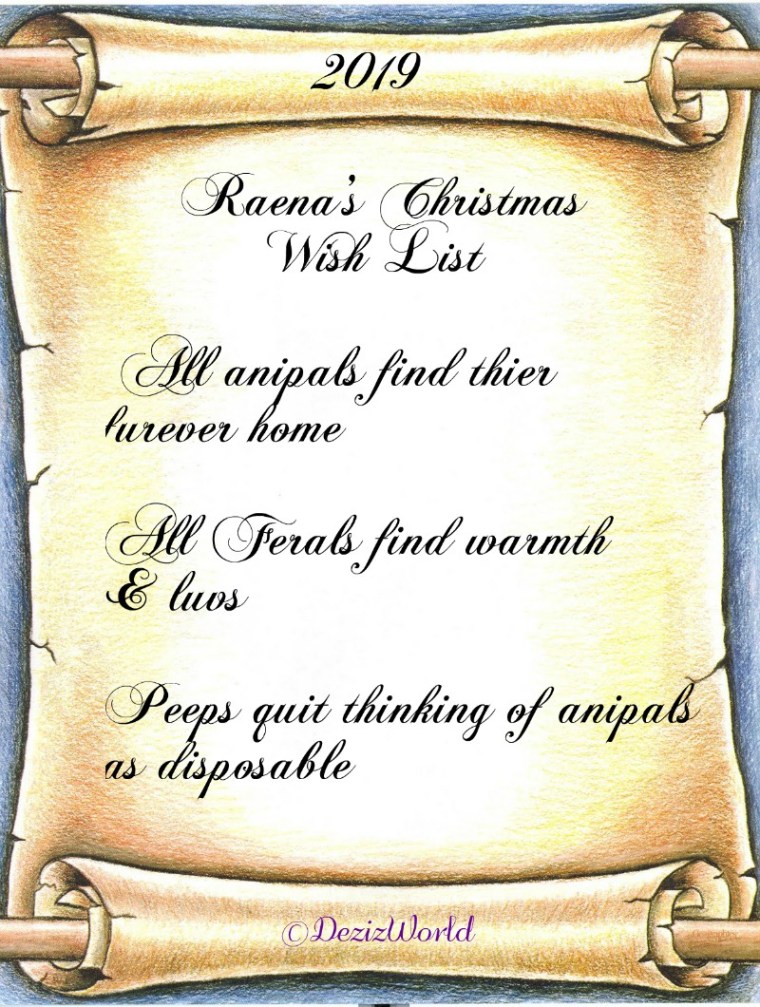 2019
Raena's Christmas
Wish List
All anipals find thier
furever home
All Ferals find warmth
& luvs
Peeps quit thinking of anipals
as disposable
©DezizWorld